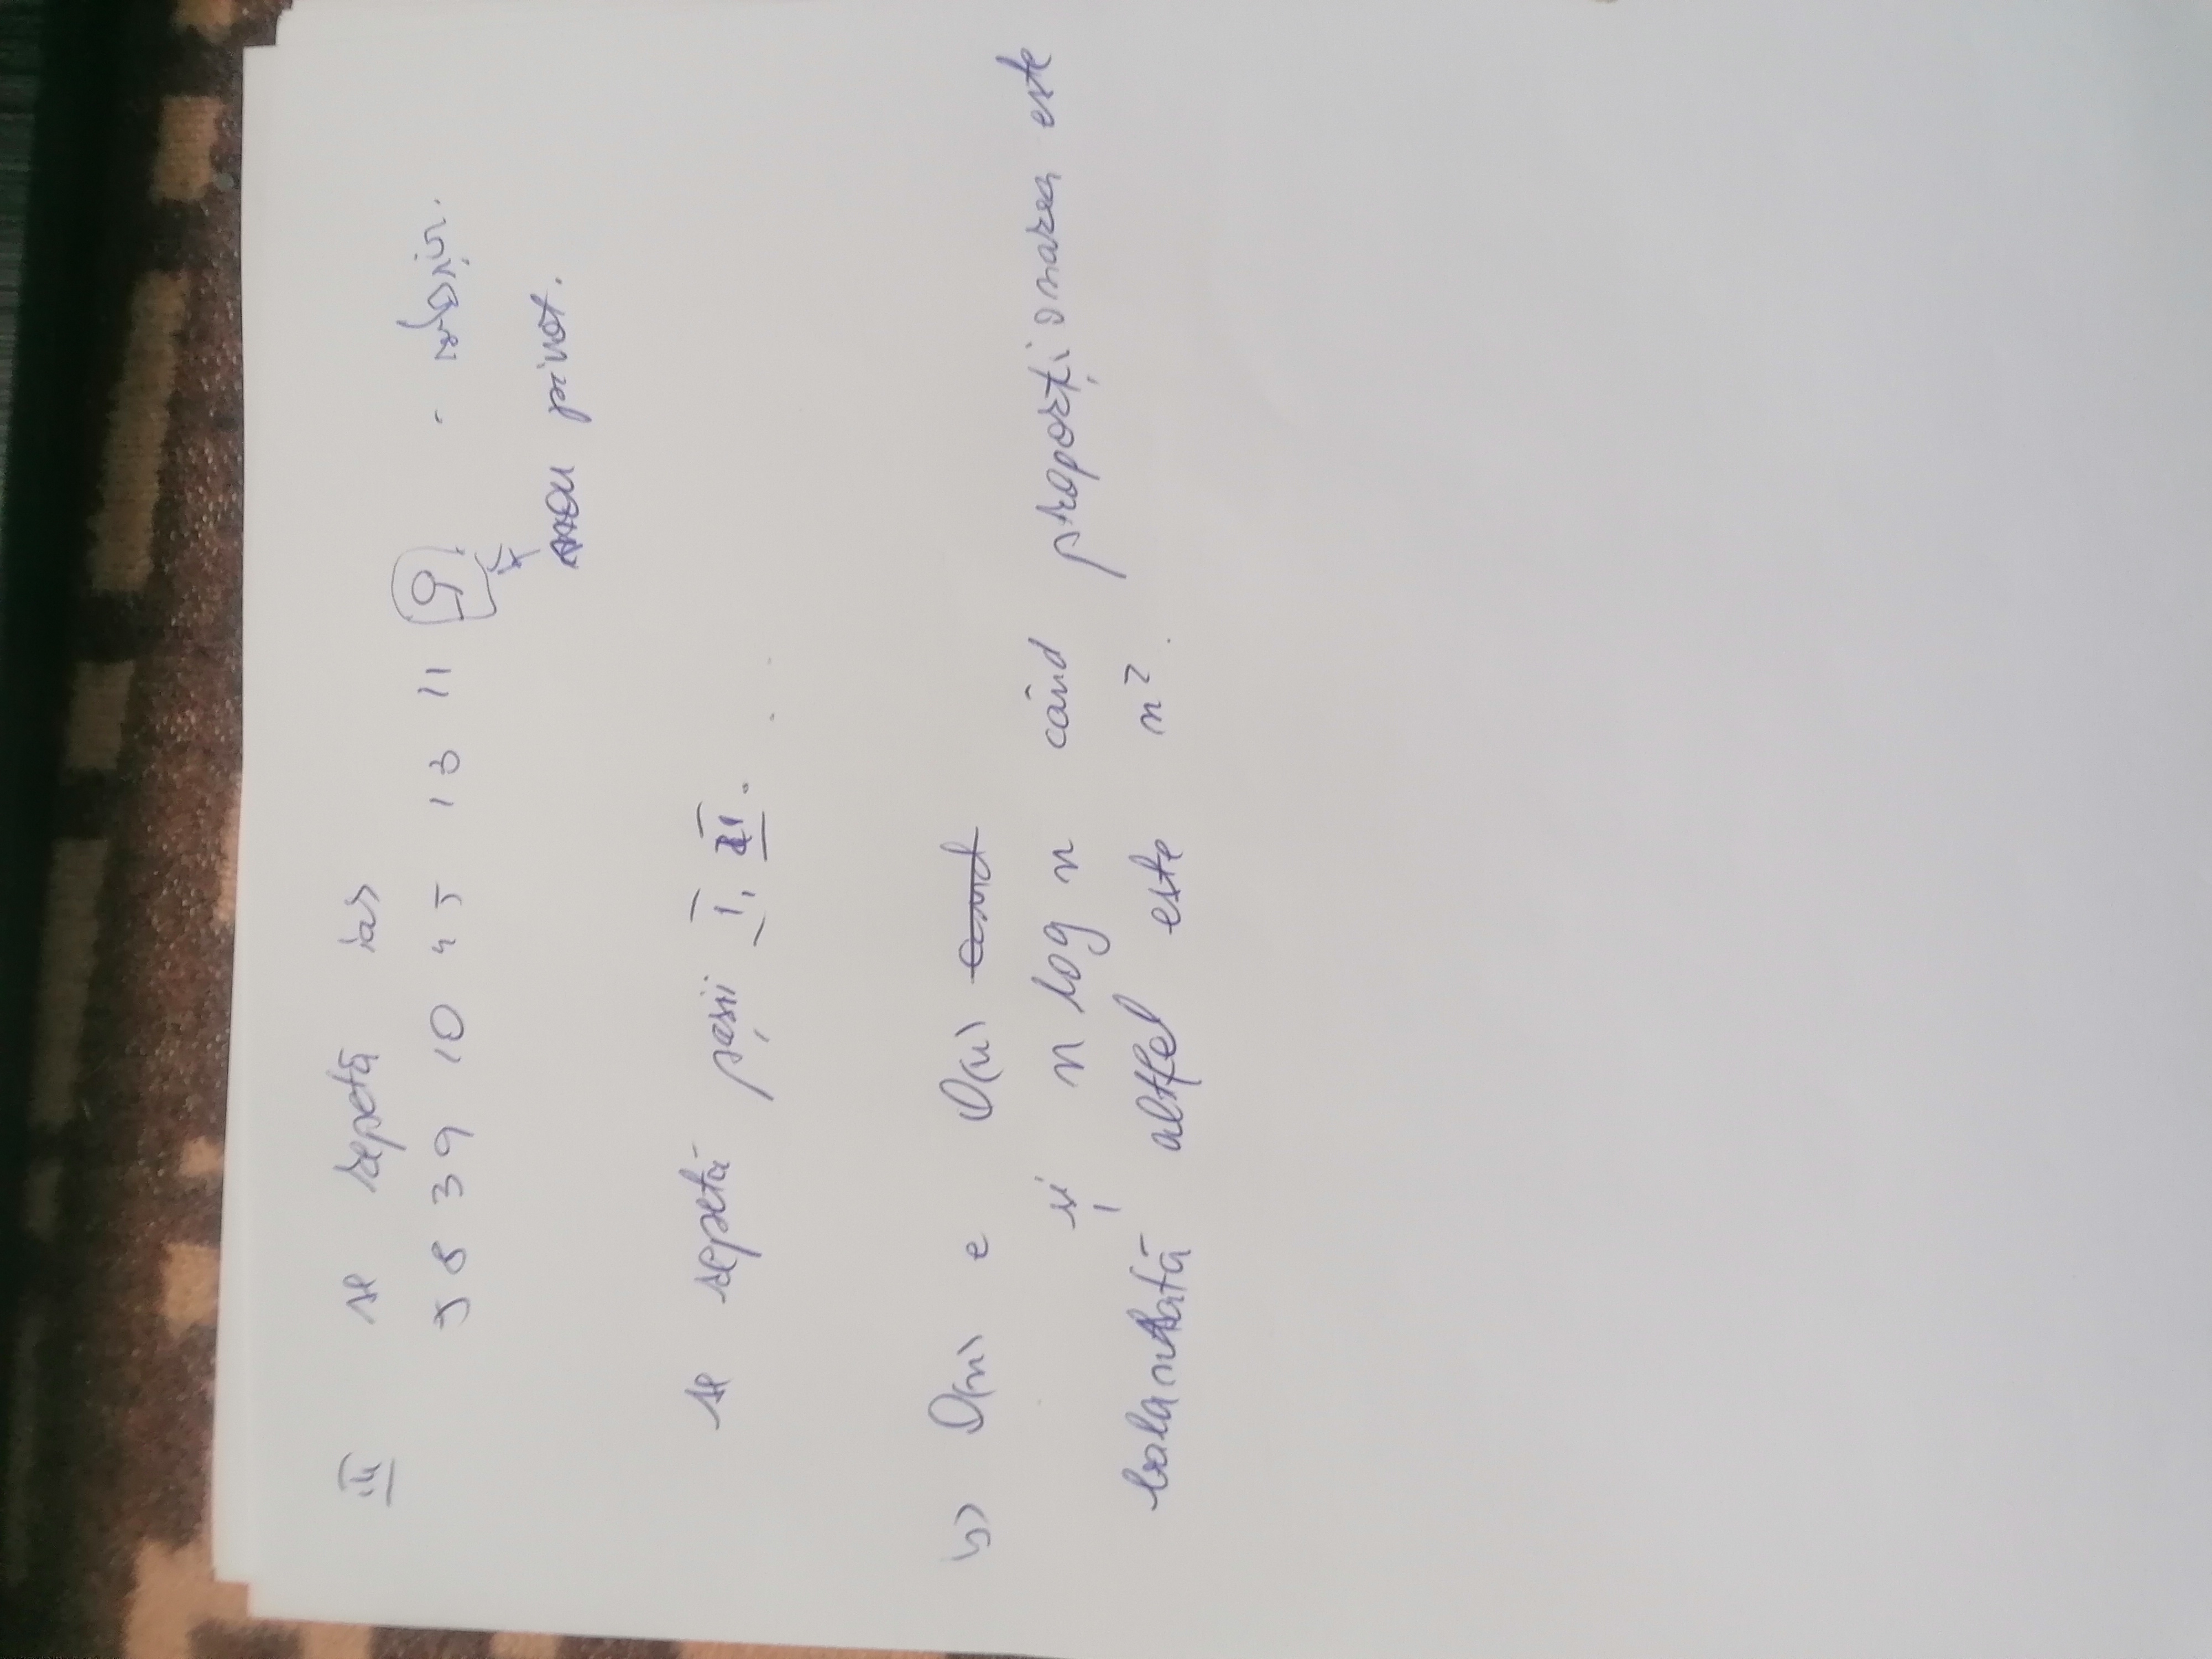 III se repetă iar
5 8 3 9 10 4 5 13 11 9 -
nou pivot.
se repetă pașii I, II.
b) O(n) e O(n)
și n log n când proporționarea este
balantată altfel este n².